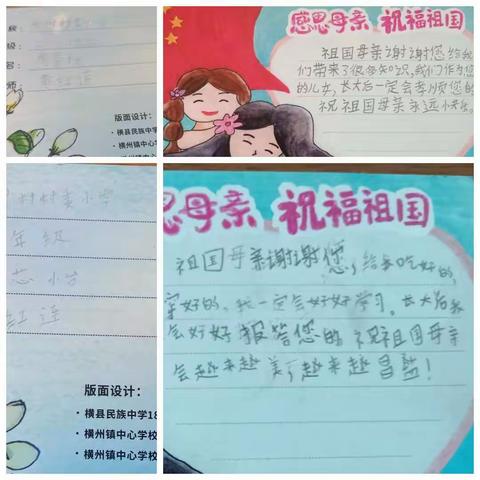 版面设计:
• 横县民族中学
• 横州镇中心学
• 横州镇中心学
感恩母亲 祝福祖国
祖国母亲谢谢您给我
们带来了很多知识,我们作为您
的儿女,长大后一定会孝顺您的
祝祖国母亲永远
村村委小学
年级
红连
版面设计:
• 横县民族中学18
• 横州镇中心学校
• 横州镇中心学校
恩母亲 祝福祖国
祖国母亲谢谢您,给我吃好的,
穿好的,我一定会好好学习。长大后我
会好好报答您的 祝祖国母亲
会越来越美,越来越昌盛!